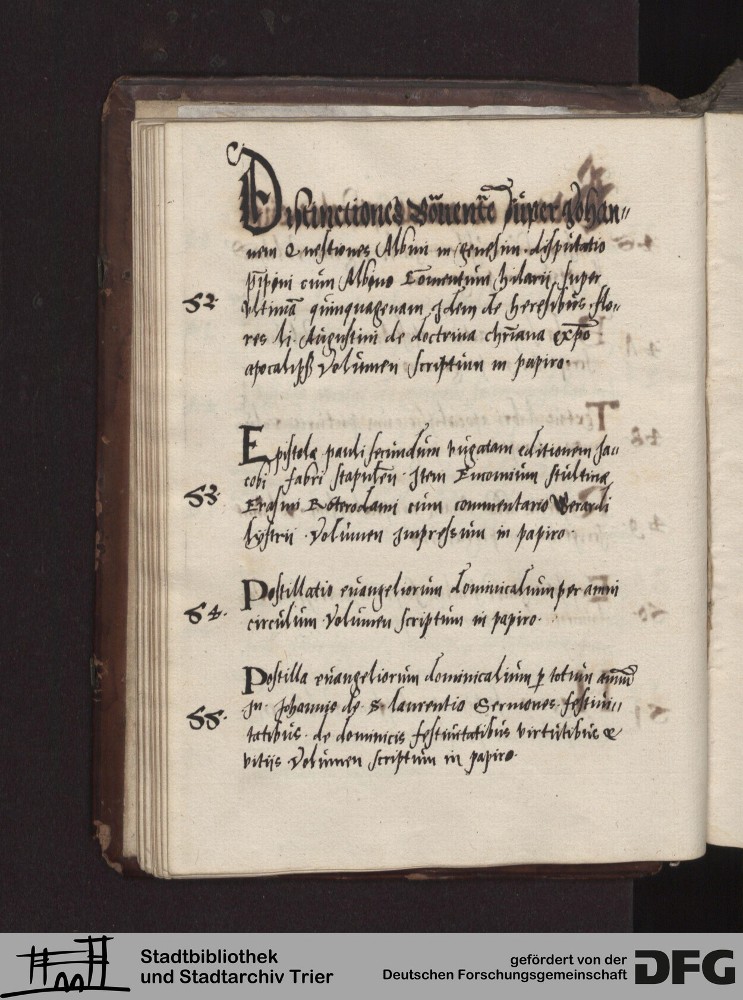 Distinctiones Bonente super Johan=
nem Questiones Albini in genesim. disputatio
pipini cum Albino Comentum hilarii super
52. vltimā quinquagenam Jdem de heresibus. flo=
res li. Augustini de doctrina chr̄iana exp̄o
apocalips̄ Volumen scriptum in papiro.
Epistole pauli secundum vugatam editionem Ja=
cobi fabri stapuleñ. Item Encomium stultitie
53. Erasmi Roterodami cum commentario Gerardi
lystrii. Volumen impressum in papiro
Postillatio euangeliorum dominicalium per anni
54. circulum. Volumen scriptum in papiro.
Postilla euangeliorum dominicalium p totum annū
Jn. Johannis de S. laurentio Sermones. festiui=
55. tatibus. de dominicis festiuitatibus virtutibus &
vitiis Volumen scriptum in papiro.
Stadtbibliothek
und Stadtarchiv Trier
gefördert von der
Deutschen Forschungsgemeinschaft
DFG